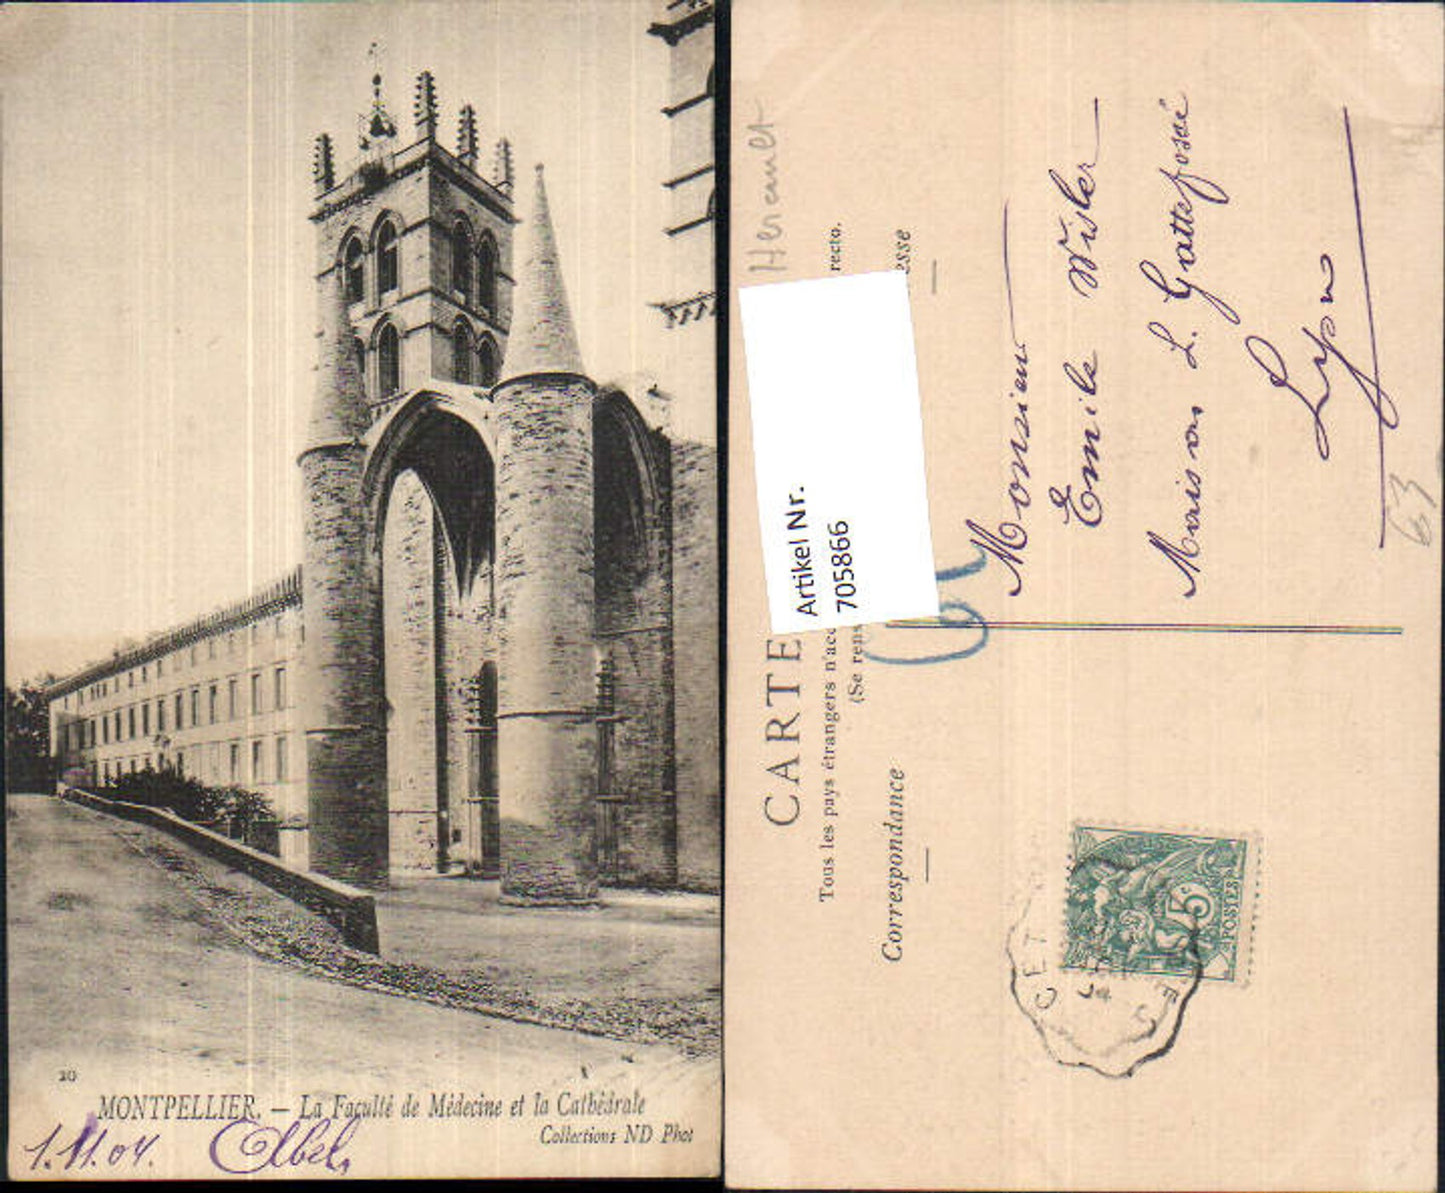 20
MONTPELLIER. — La Faculté de Médecine et la Cathédrale
Collections ND Phot
1.11.04.
Herault
CARTE
Tous les pays étrangers n'acc
recto.
(Se rens
Correspondance
esse
Artikel Nr.
705866
Monsieur
Emile Wisler
Maison L. Gattefossé
Lyon
63
5c
POSTES
CET